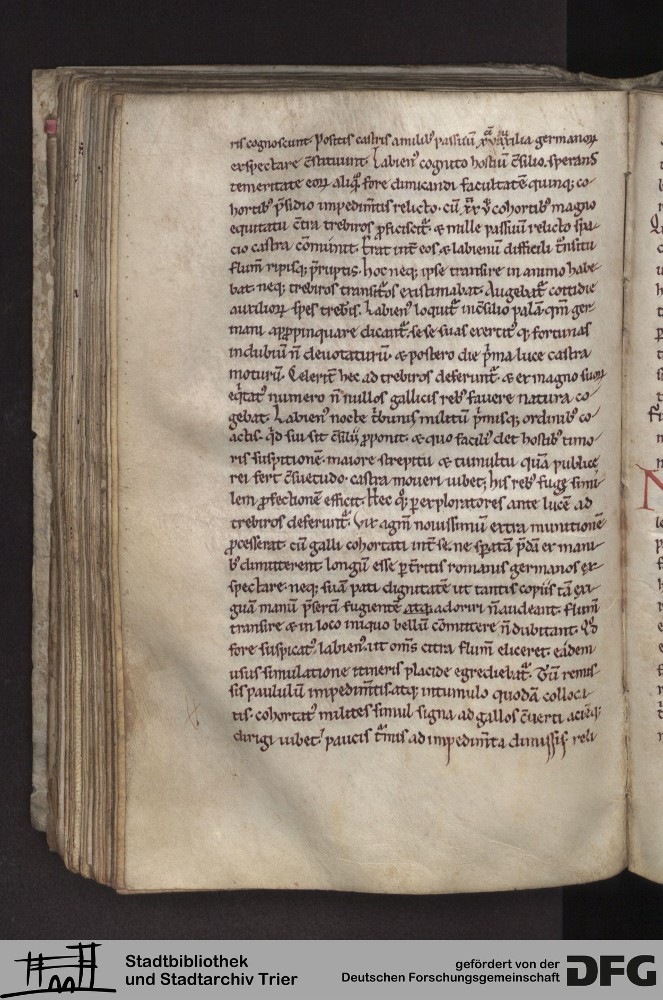 ris cognoscunt. Positis castris a milib; passuū xv auxilia germanoꝝ
exspectare c̄stituunt. Labien; cognito hostiū c̄silio. sperans
temeritate eoꝝ aliq̄ fore dimicandi facultatē quinq; co-
hortib; p̄sidio impedim̄tis relicto. cū xx v cohortib; magno
equitatu c̄tra trebiros ꝓficiscit᷑. & mille passuū relicto spa-
cio castra cōmunit. Erat int̄ eos & labienū difficili t̄nsitu
flum̄ ripisq; p̄ruptis. hoc neq; ipse transire in animo habe-
bat. neq; trebiros transit;ros existimabat. Augebat᷑ cottidie
auxilioꝝ spes treb̄is. Labien; loquit᷑ in c̄silio palā. qm̄ ger-
mani appropinquare dicant᷑. sese suas exercit; q; fortunas
in dubiū n̄ devotaturū. & postero die p̄ma luce castra
moturū. Celerit̄ hec ad trebiros deferunt᷑. & ex magno suoꝝ
eq̄tat; numero n̄ nullos gallicis reb; favere natura co-
gebat. Labien; nocte t̄bunis militū p̄misq; ordinib; co-
actis. q̄d sui sit c̄silij ꝓponit. & quo facili; det hostib; timo-
ris suspitionē. maiore strepitu & tumultu quā publicę
rei fert c̄suetudo. castra moveri iubet; his reb; fugę simi-
lem ꝓfectionē efficit. Hec q; p̱ exploratores ante lucē ad
trebiros deferunt᷑. Vix agm̄ novissimū extra munitionē
ꝓcesserat. cū galli cohortati int̄ se. ne sp̱atā p̄dā ex mani-
b; dimitterent. longū esse p̱t̄ritis romanis germanos ex-
spectare. neq; suā pati dignitatē ut tantis copiis tā exi-
guā manū p̄serti fugientē adoriri n̄ audeant. flum̄
transire & in loco iniquo bellū cōmittere n̄ dubitant. Qđ
fore suspicat; labien; ut om̄s citra flum̄ eliceret. eadem
usus simulatione itineris placide egrediebat᷑. Tū remis-
sis paululū impedim̄tis. atq; in tumulo quodā colloca-
tis. cohortat; milites simul signa ad gallos c̄verti aciēq;
dirigi iubet. paucis t̄mis ad impedim̄ta dimissis. reli
Stadtbibliothek
und Stadtarchiv Trier
gefördert von der
Deutschen Forschungsgemeinschaft
DFG